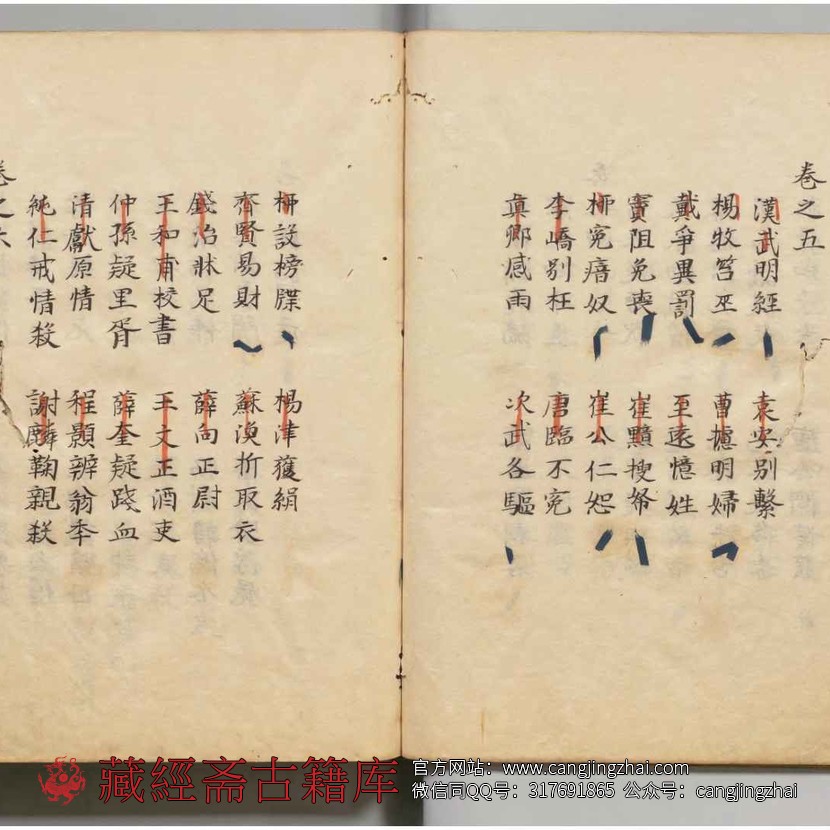 卷之五
漢武明經 袁安別繫
楊牧笞巫 曹攄明婦
戴爭異罰 至遠憶姓
竇阻免喪 崔黯搜帑
柳寃瘖奴 崔公仁恕
李嶠別枉 唐臨不寃
真卿感雨 次武各驅
柳設榜牒 楊津獲絹
齊賢易財 蘇渙折取衣
錢冶牀足 薛向正尉
王和甫校書 王文正酒吏
仲孫疑里胥 薛奎疑踐血
清獻原情 程顥辨翁年
純仁戒情殺 謝麟鞠親殺
卷之六
藏經斋古籍库
官方网站：www.cangjingzhai.com
微信同QQ号：317691865 公众号：cangjingzhai